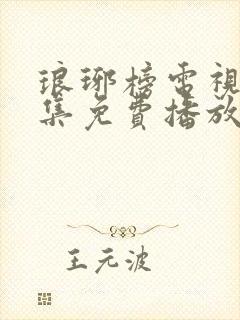 琅琊榜電視
集免費播放
王元波